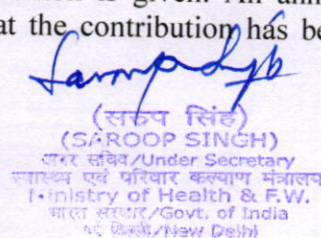 at the contribution has be
(सरुप सिंह)
(SAROOP SINGH)
अवर सचिव/Under Secretary
स्वास्थ्य एवं परिवार कल्याण मंत्रालय
Ministry of Health & F.W.
भारत सरकार/Govt. of India
नई दिल्ली/New Delhi